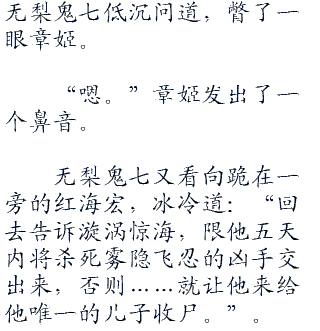 无梨鬼七低沉问道，瞥了一
眼章姬。
“嗯。”章姬发出了一
个鼻音。
无梨鬼七又看向跪在一
旁的红海宏，冰冷道：“回
去告诉漩涡惊海，限他五天
内将杀死雾隐飞忍的凶手交
出来，否则……就让他来给
他唯一的儿子收尸。”。